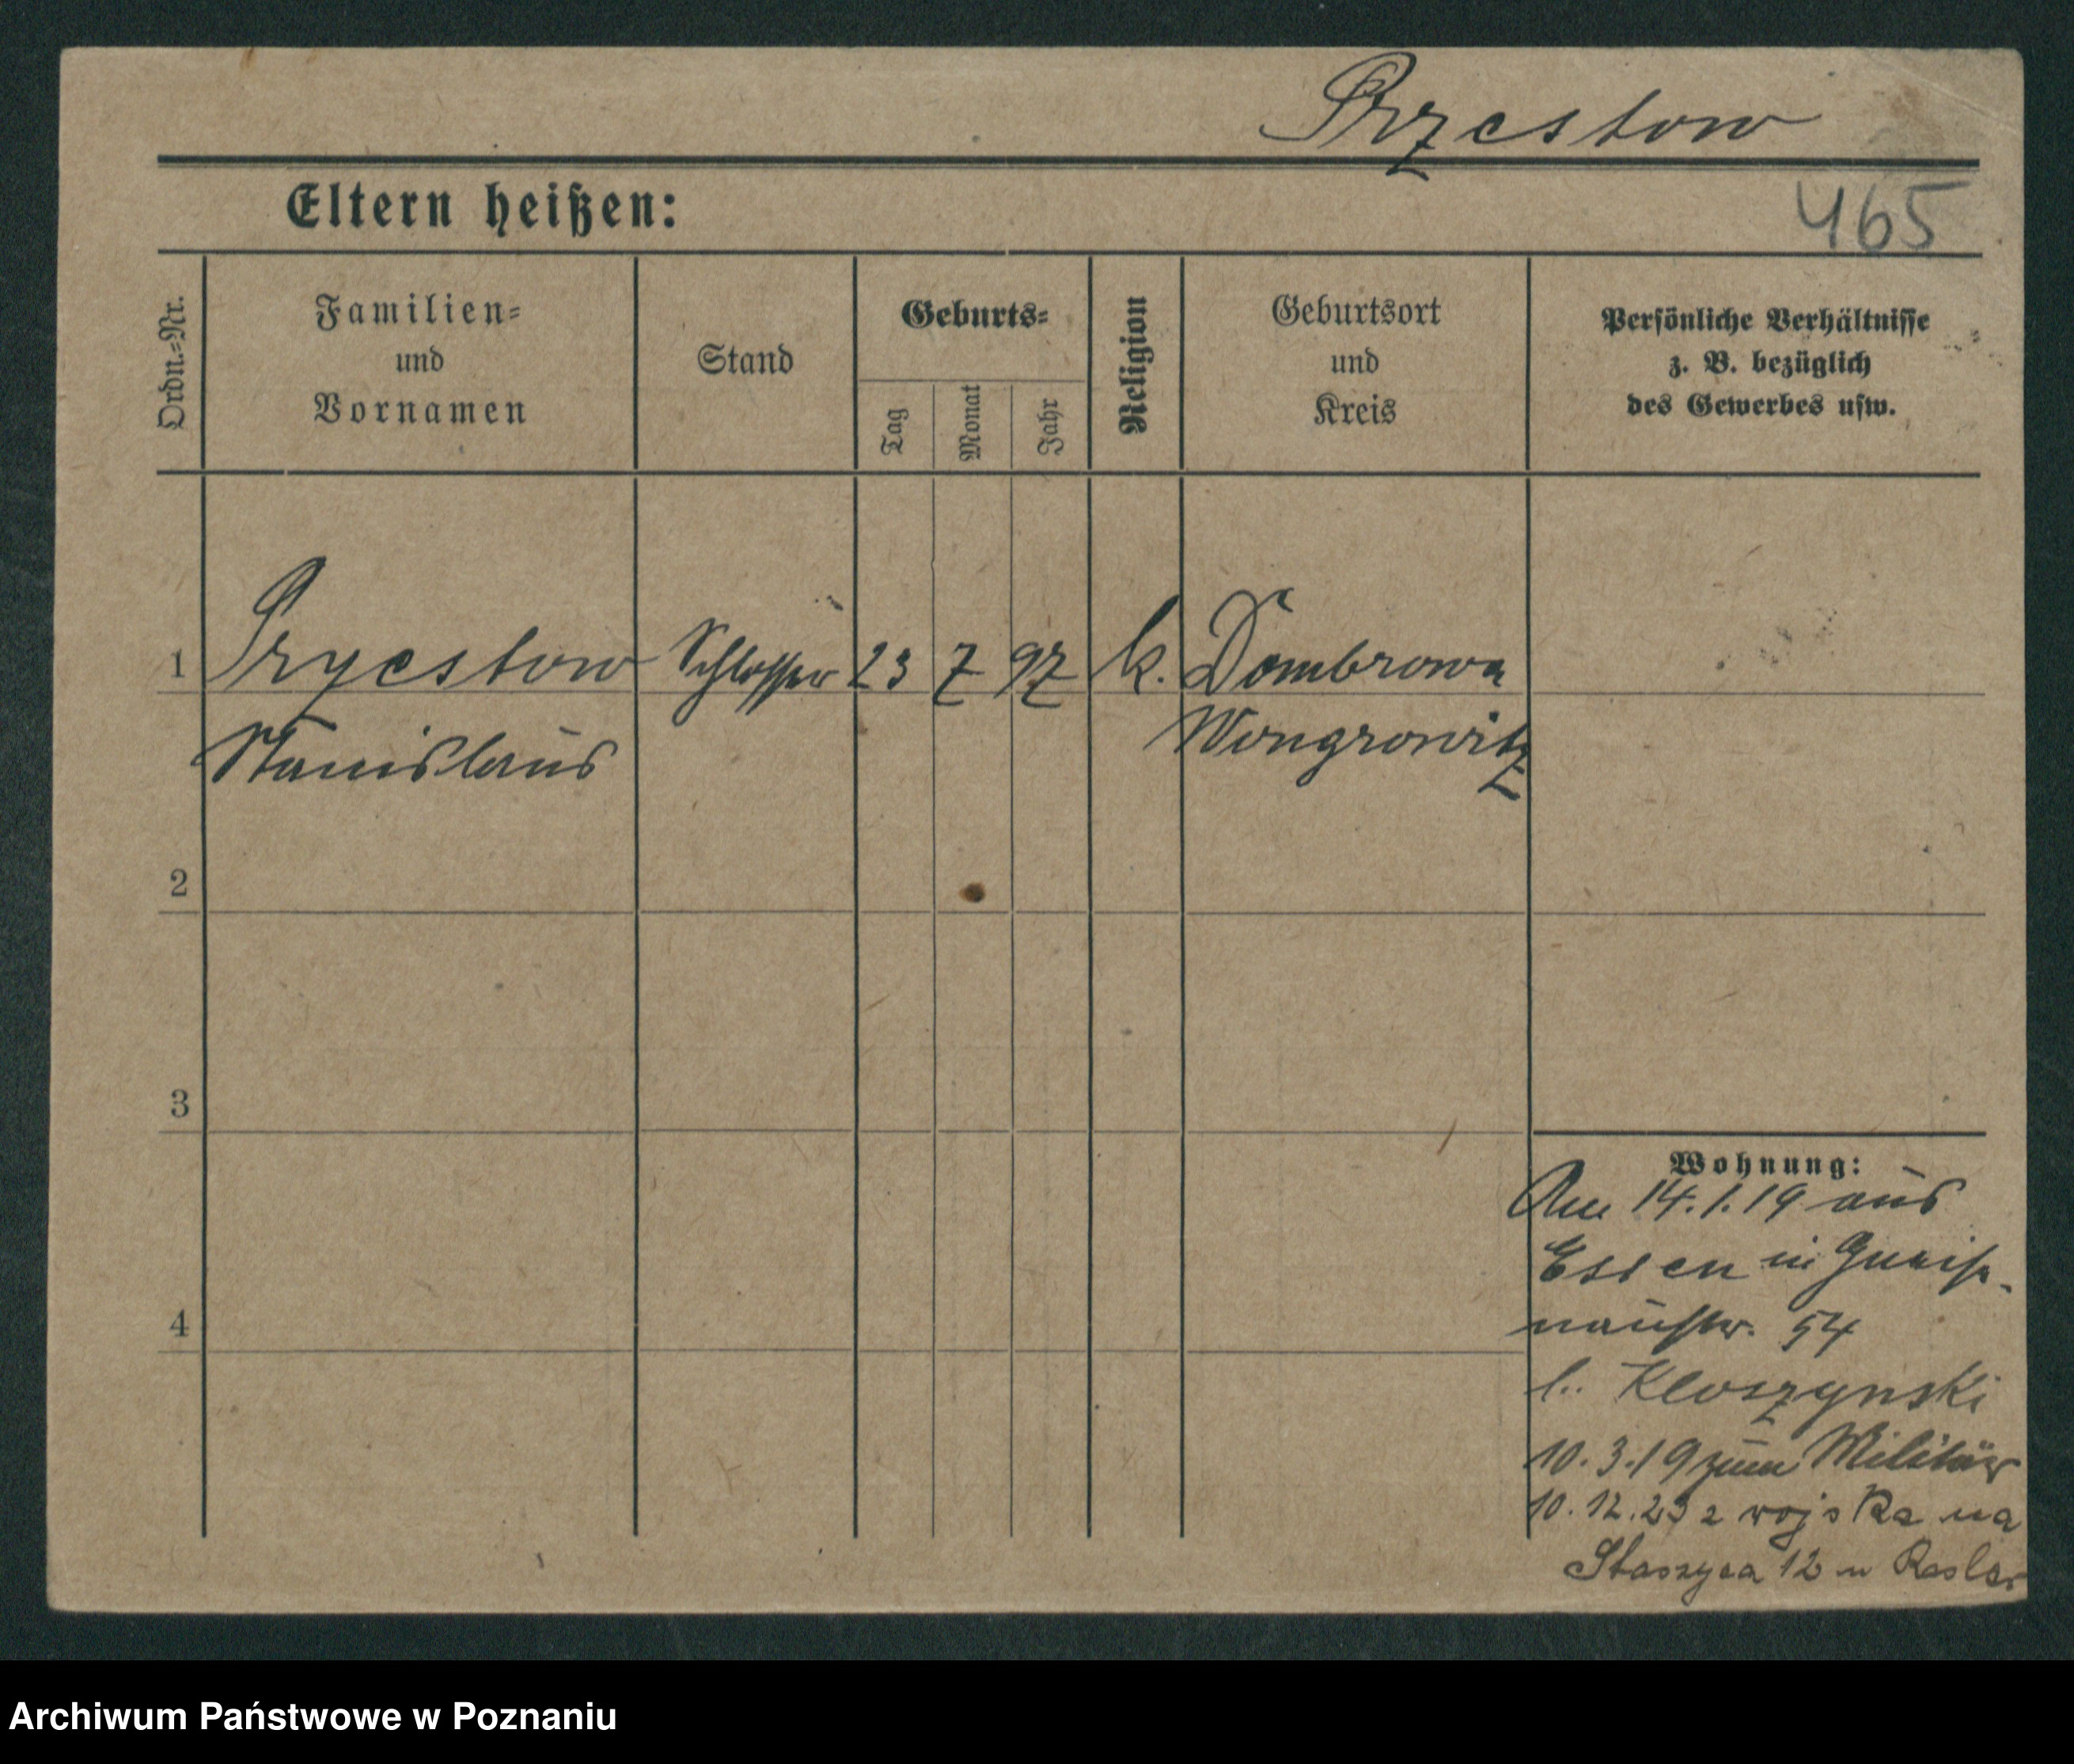 Przestow
Eltern heißen:
465
Ordn.=Nr.
Familien=
und
Vornamen
Stand
Geburts=
Tag
Monat
Jahr
Religion
Geburtsort
und
Kreis
Persönliche Verhältnisse
z. B. bezüglich
des Gewerbes usw.
1 Przestow Schlosser 23 7 97 k. Dombrowa
Stanislaus Wongrowitz
2
3
4
Wohnung:
Am 14.1.19 aus
Essen in Gneise-
naustr. 54
b. Kloszynski
10.3.19 zum Militär
10.12.23 z wojska na
Staszyca 12 u
Archiwum Państwowe w Poznaniu